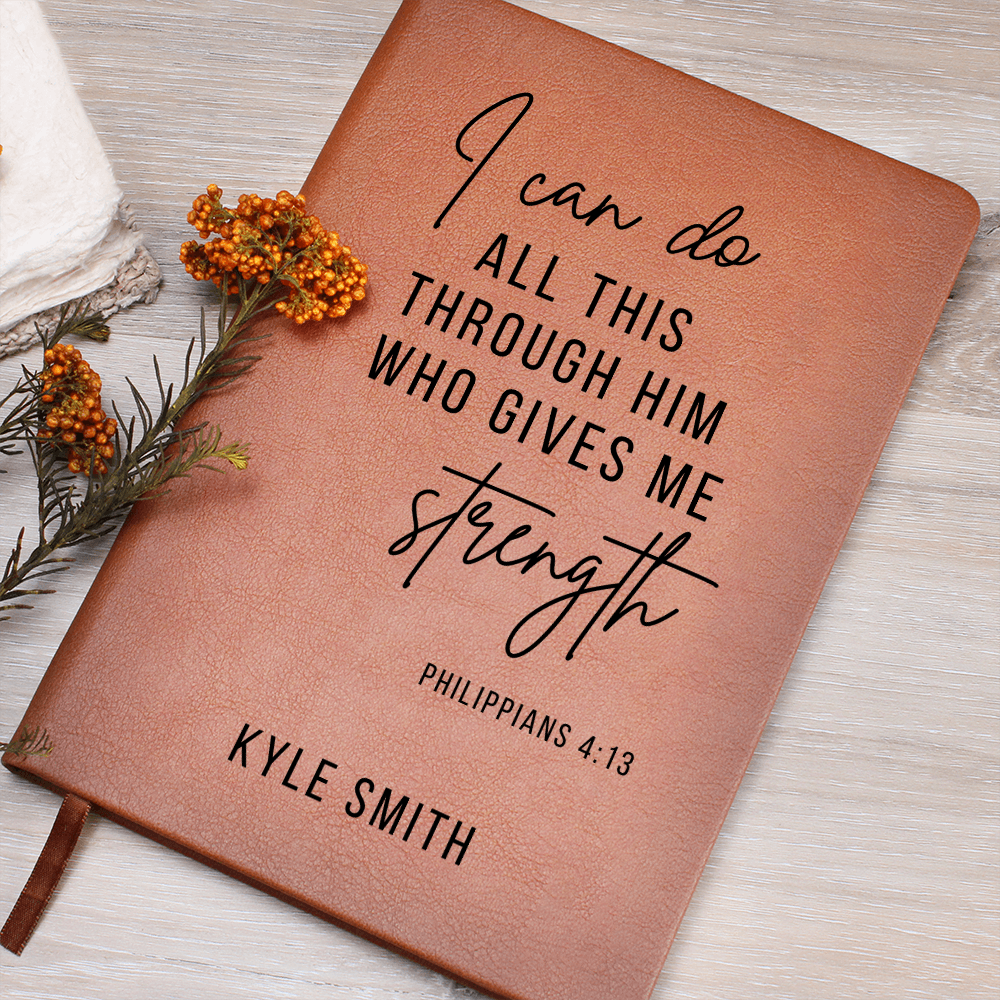 I can do
ALL THIS
THROUGH HIM
WHO GIVES ME
strength
PHILIPPIANS 4:13
KYLE SMITH